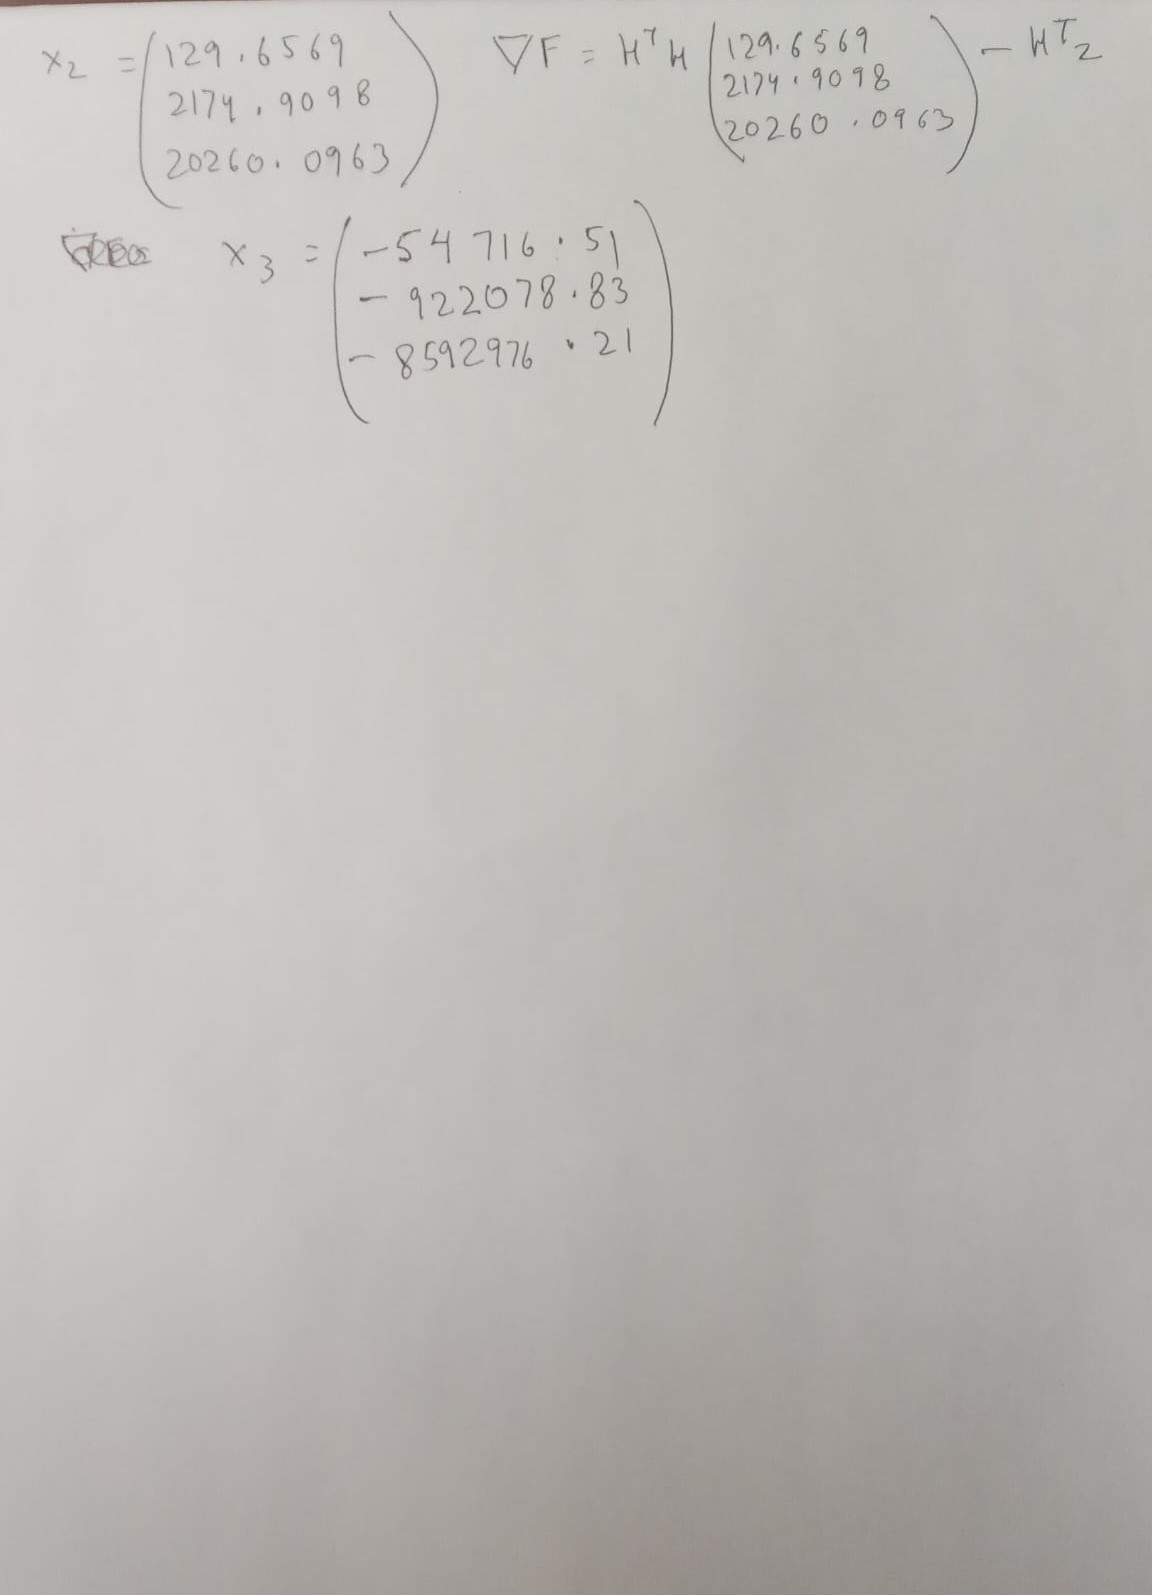 x₂ = (129.6569 2174.9098 20260.0963) ∇F = HᵀH (129.6569 2174.9098 20260.0963) − Hᵀz
x₃ = (−54716.51 −922078.83 −8592976.21)